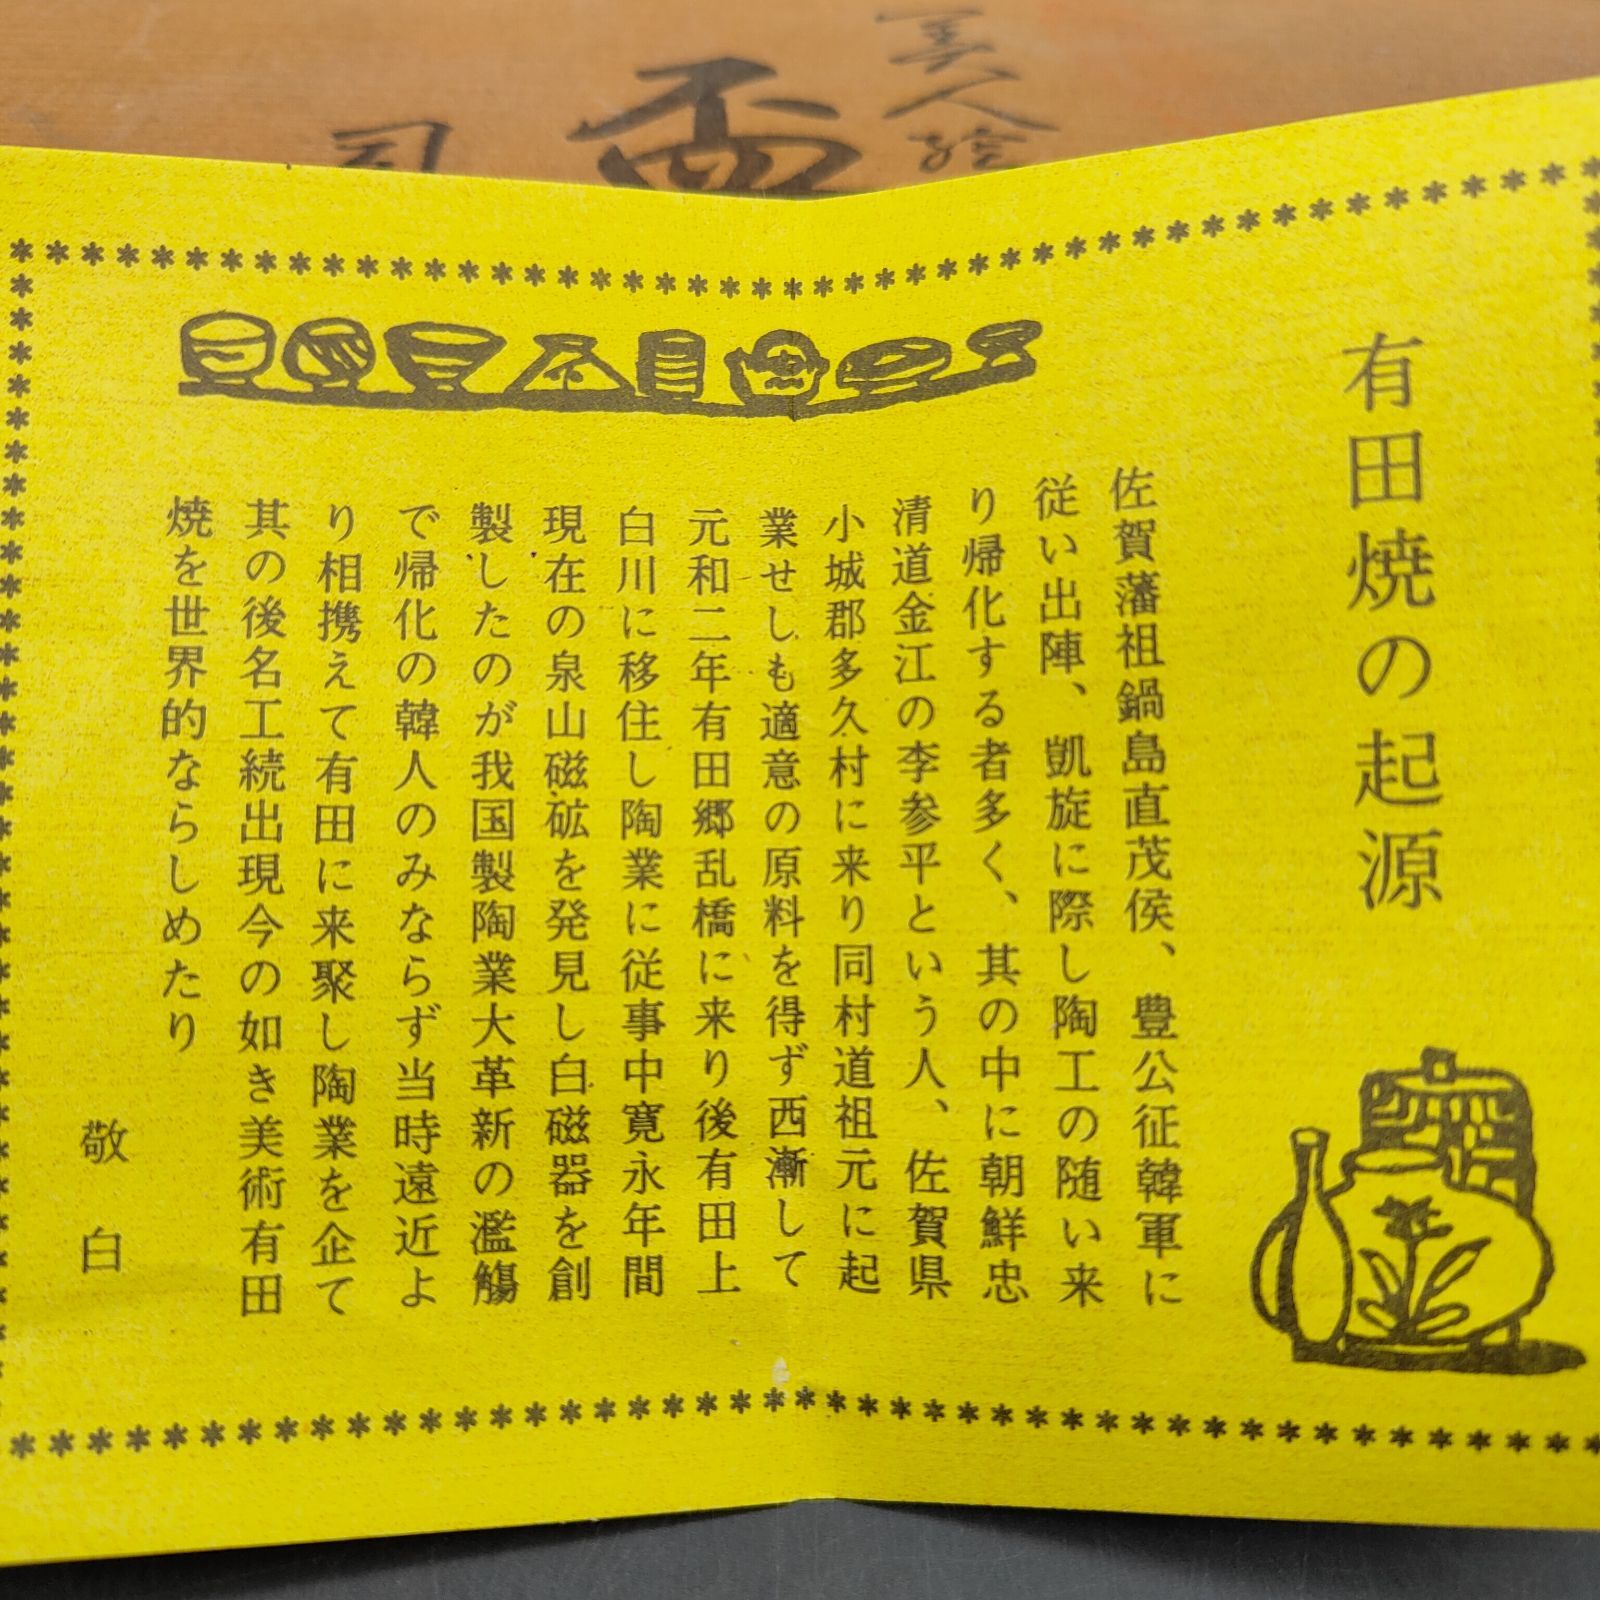 美人絵
司
有田焼の起源
佐賀藩祖鍋島直茂侯、豊公征韓軍に
従い出陣、凱旋に際し陶工の随い来
り帰化する者多く、其の中に朝鮮忠
清道金江の李参平という人、佐賀県
小城郡多久村に来り同村道祖元に起
業せしも適意の原料を得ず西漸して
元和二年有田郷乱橋に来り後有田上
白川に移住し陶業に従事中寛永年間
現在の泉山磁砿を発見し白磁器を創
製したのが我国製陶業大革新の濫觴
で帰化の韓人のみならず当時遠近よ
り相携えて有田に来聚し陶業を企て
其の後名工続出現今の如き美術有田
焼を世界的ならしめたり
敬白